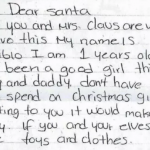 Dear santa
you and Mrs. Claus are w
ve this My name IS
blo I am 1 years old
been a good girl thi
y and daddy don't have
spend on christmas gi
ting to you it would make
y. If you and your elves
e toys and clothes.